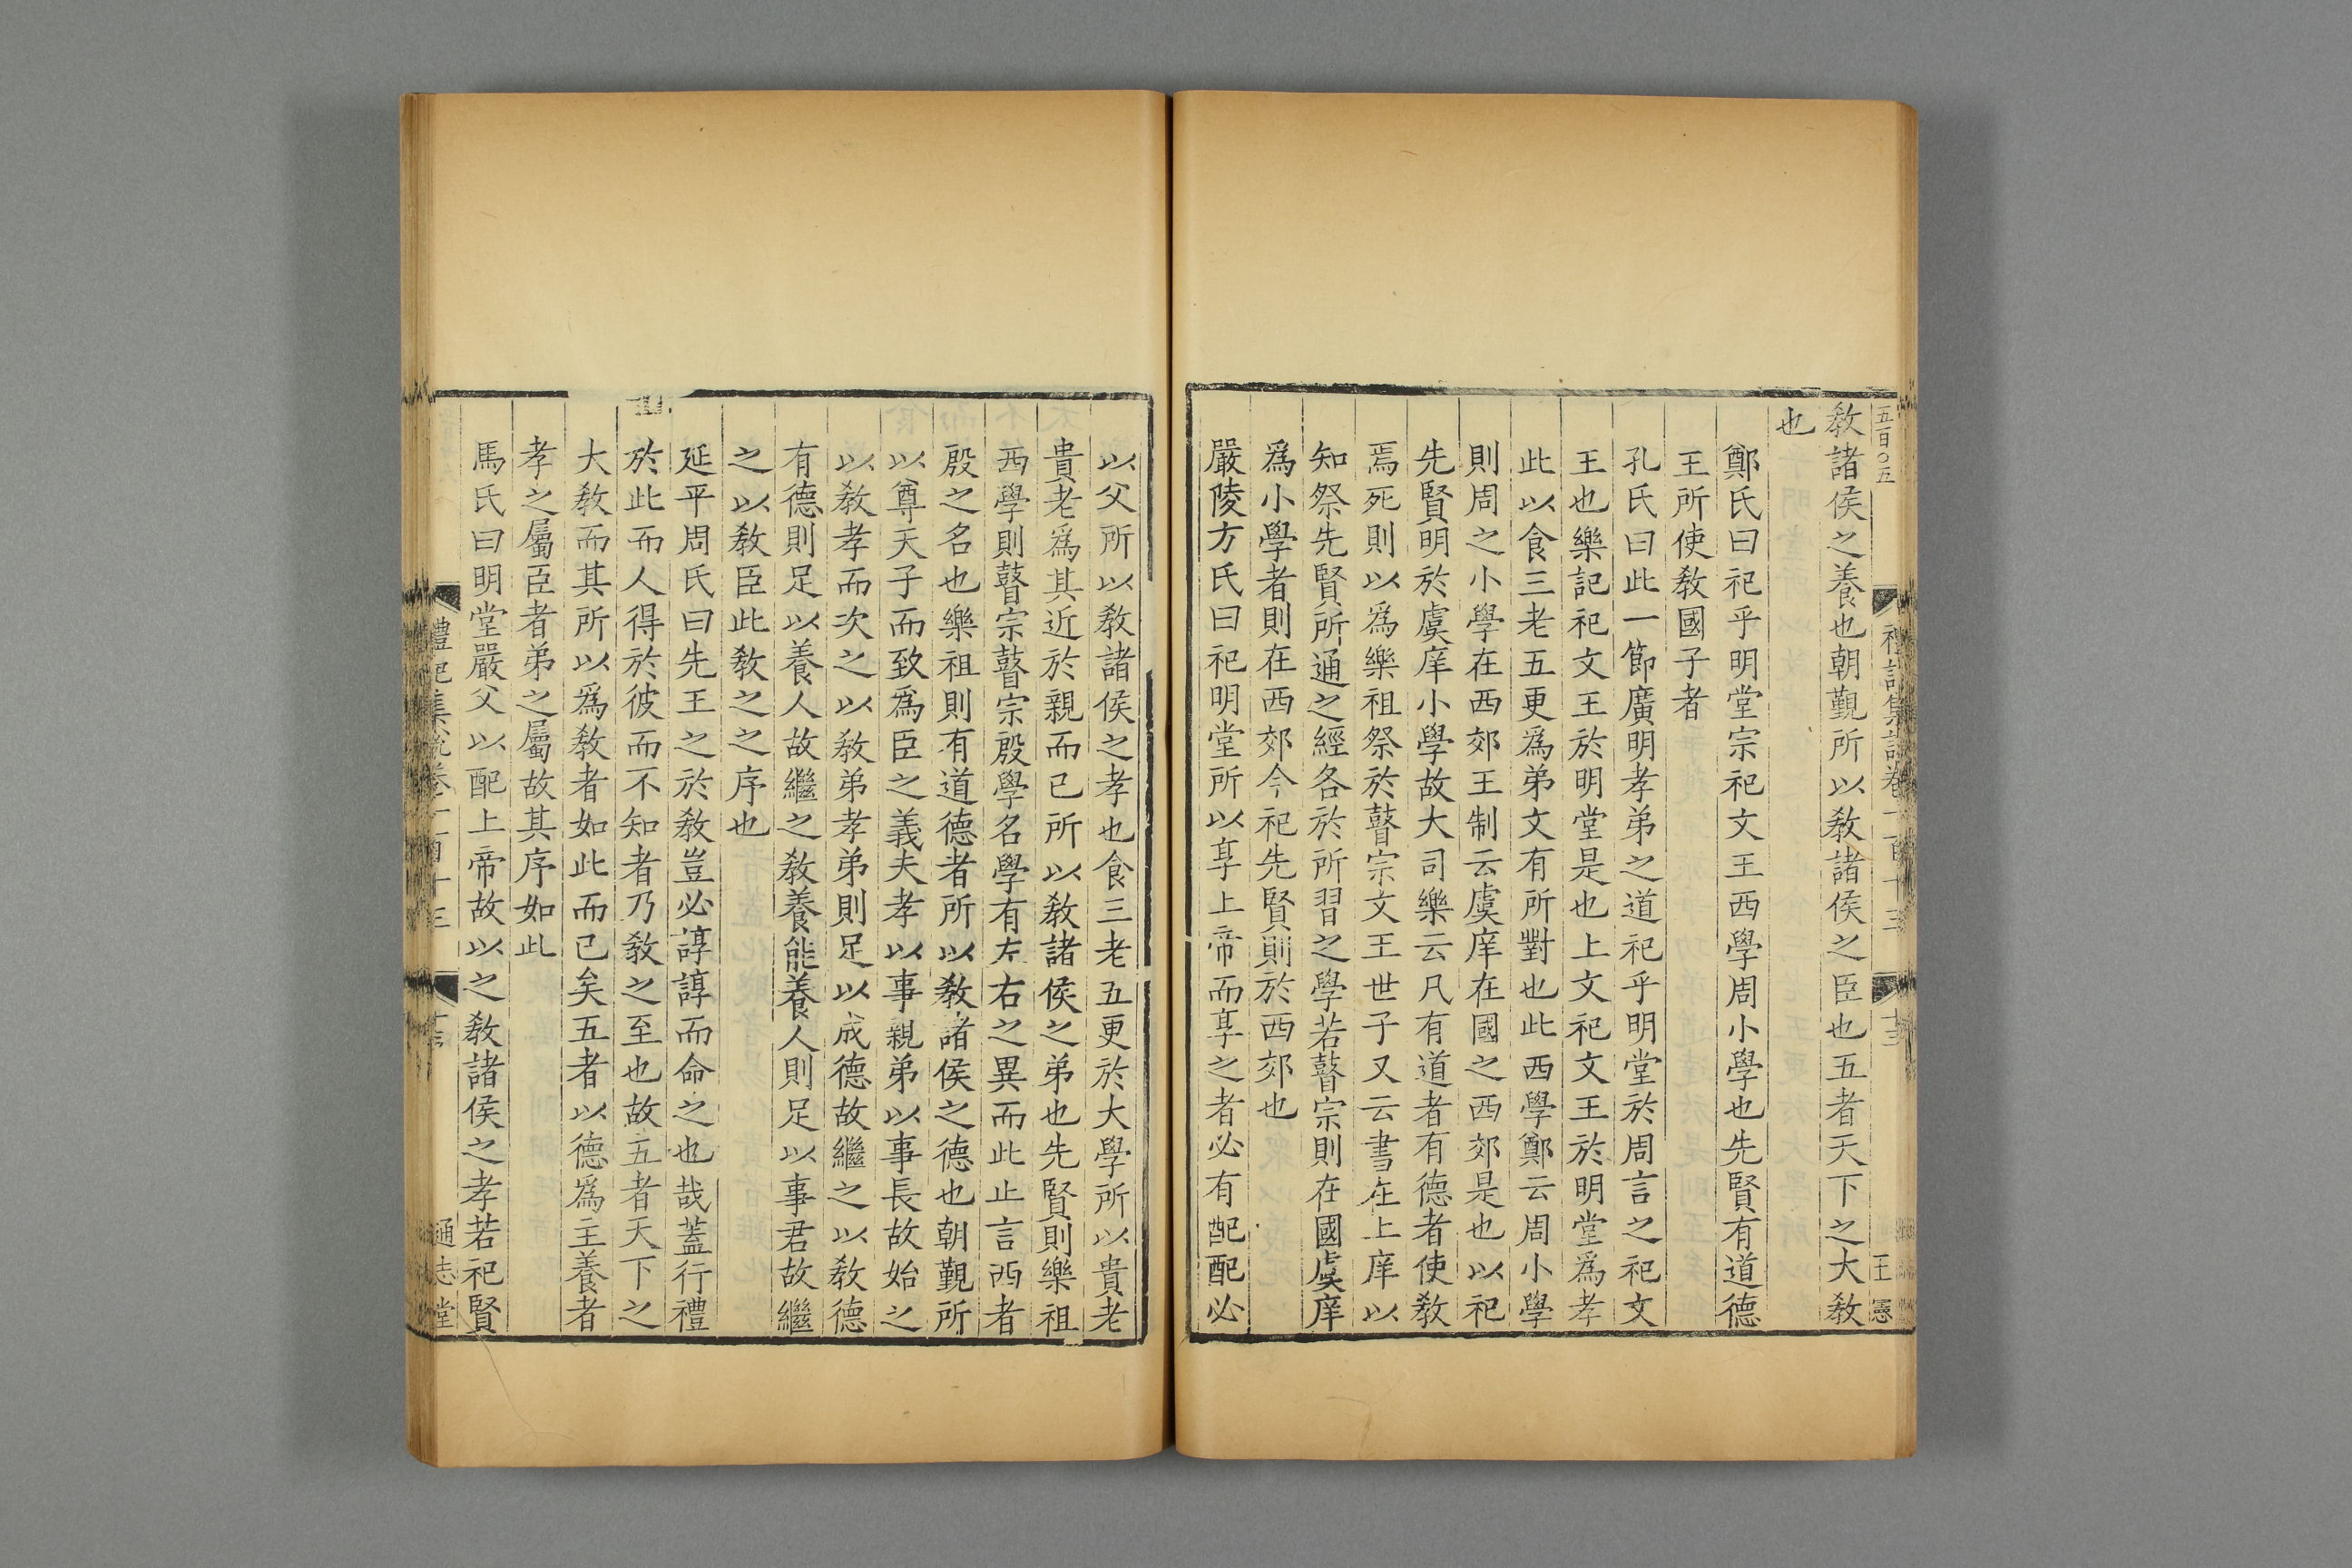 五百〇五
禮記集說卷一百十三
十三
王 憲
敎諸侯之養也朝覲所以敎諸侯之臣也五者天下之大敎
也
鄭氏曰祀乎明堂宗祀文王西學周小學也先賢有道德
王所使敎國子者
孔氏曰此一節廣明孝弟之道祀乎明堂於周言之祀文
王也樂記祀文王於明堂是也上文祀文王於明堂爲孝
此以食三老五更爲弟文有所對也此西學鄭云周小學
則周之小學在西郊王制云虞庠在國之西郊是也以祀
先賢明於虞庠小學故大司樂云凡有道者有德者使敎
焉死則以爲樂祖祭於瞽宗文王世子又云書在上庠以
知祭先賢所通之經各於所習之學若瞽宗則在國虞庠
爲小學者則在西郊今祀先賢則於西郊也
嚴陵方氏曰祀明堂所以享上帝而享之者必有配配必
以父所以敎諸侯之孝也食三老五更於大學所以貴老
貴老爲其近於親而已所以敎諸侯之弟也先賢則樂祖
西學則瞽宗瞽宗殷學名學有左右之異而此止言西者
殷之名也樂祖則有道德者所以敎諸侯之德也朝覲所
以尊天子而致爲臣之義夫孝以事親弟以事長故始之
以敎孝而次之以敎弟孝弟則足以成德故繼之以敎德
有德則足以養人故繼之敎養能養人則足以事君故繼
之以敎臣此敎之之序也
延平周氏曰先王之於敎豈必諄諄而命之也哉蓋行禮
於此而人得於彼而不知者乃敎之至也故五者天下之
大敎而其所以爲敎者如此而已矣五者以德爲主養者
孝之屬臣者弟之屬故其序如此
馬氏曰明堂嚴父以配上帝故以之敎諸侯之孝若祀賢
禮記集說卷一百十三
通志堂